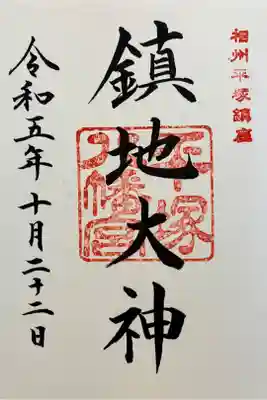 相州平塚鎮座
鎮地大神
平塚八幡宮
令和五年十月二十二日